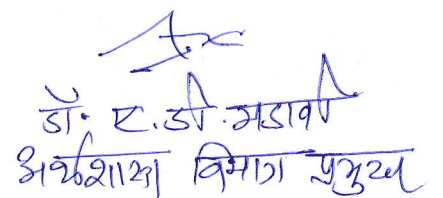 डॉ. ए. डी. मडावी
अर्थशास्त्र विभाग प्रमुख